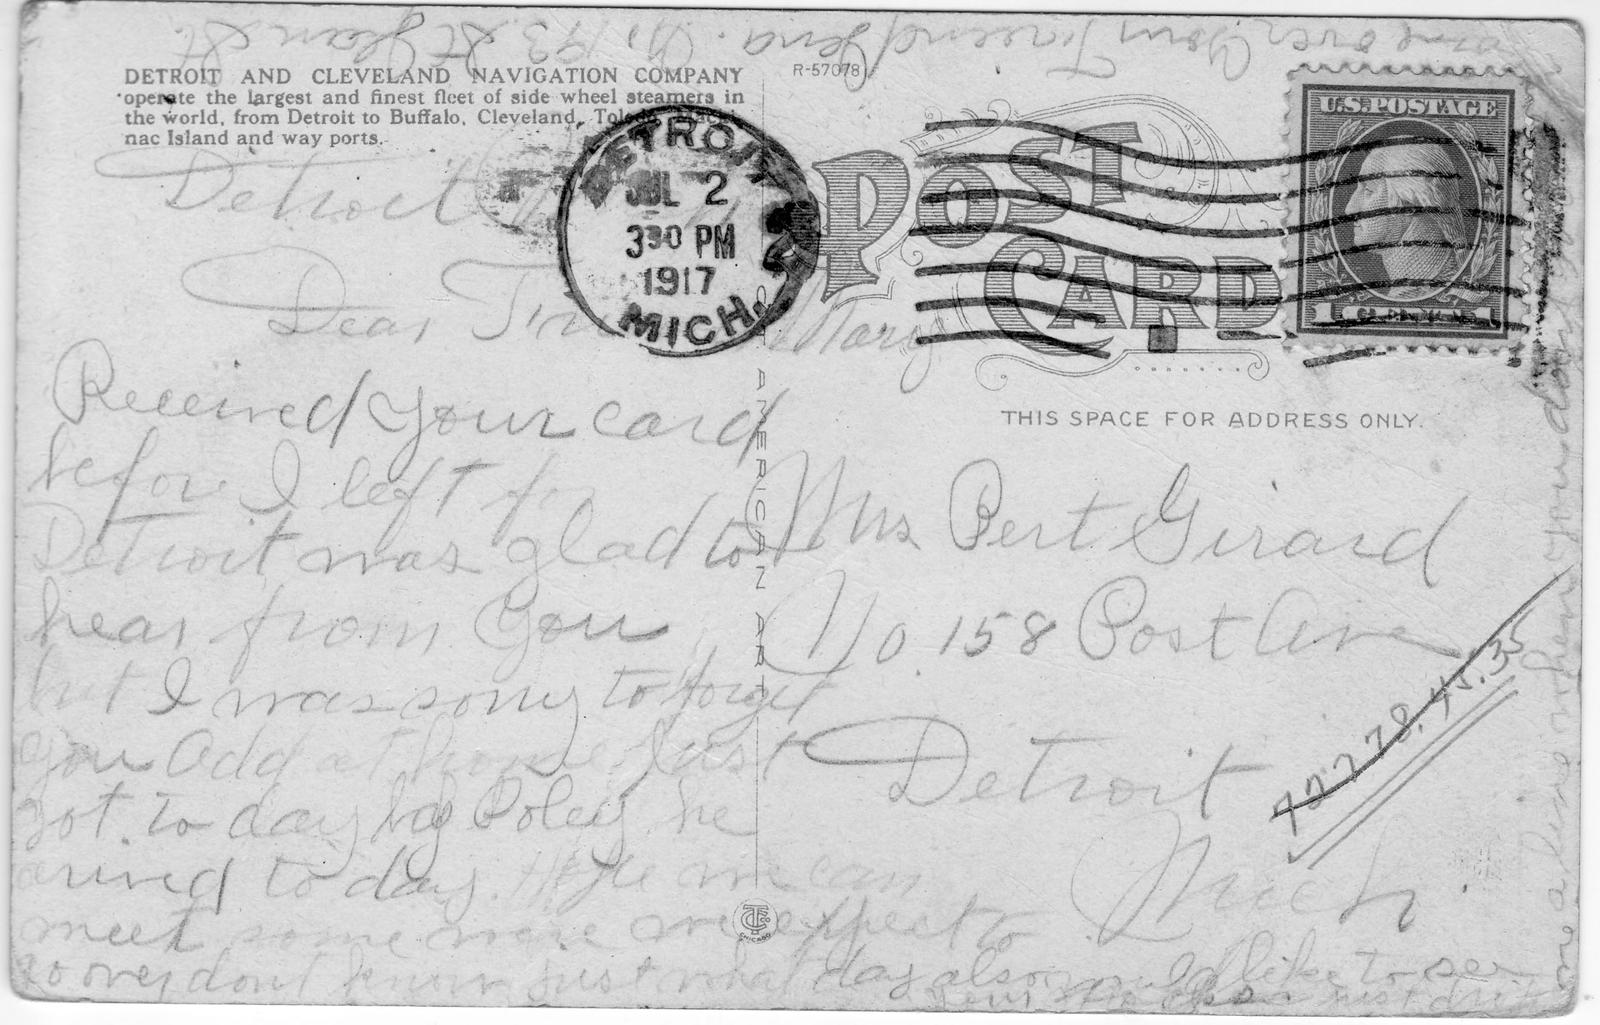 DETROIT AND CLEVELAND NAVIGATION COMPANY
operate the largest and finest fleet of side wheel steamers in
the world, from Detroit to Buffalo, Cleveland, Toledo,
nac Island and way ports.
R-57078
POST
CARD
THIS SPACE FOR ADDRESS ONLY.
U.S. POSTAGE
1 1
DETROIT
JUL 2
330 PM
1917
MICH.
AMERICAN ART
CHICAGO
Detroit
Dear Mary
Received your card
before I left for
Detroit was glad to
hear from you
but I was sorry to forget
you add at home Just
got to day by Poley he
arived to day. Hope we can
meet some were we expect to
go over dont know just what day also would like to see
just drop
me a line when you
come over your Freind Jena. No 193 St Jean St.
Mrs Bert Girard
No. 158 Post Ave
Detroit
Mich.
72778.45.35